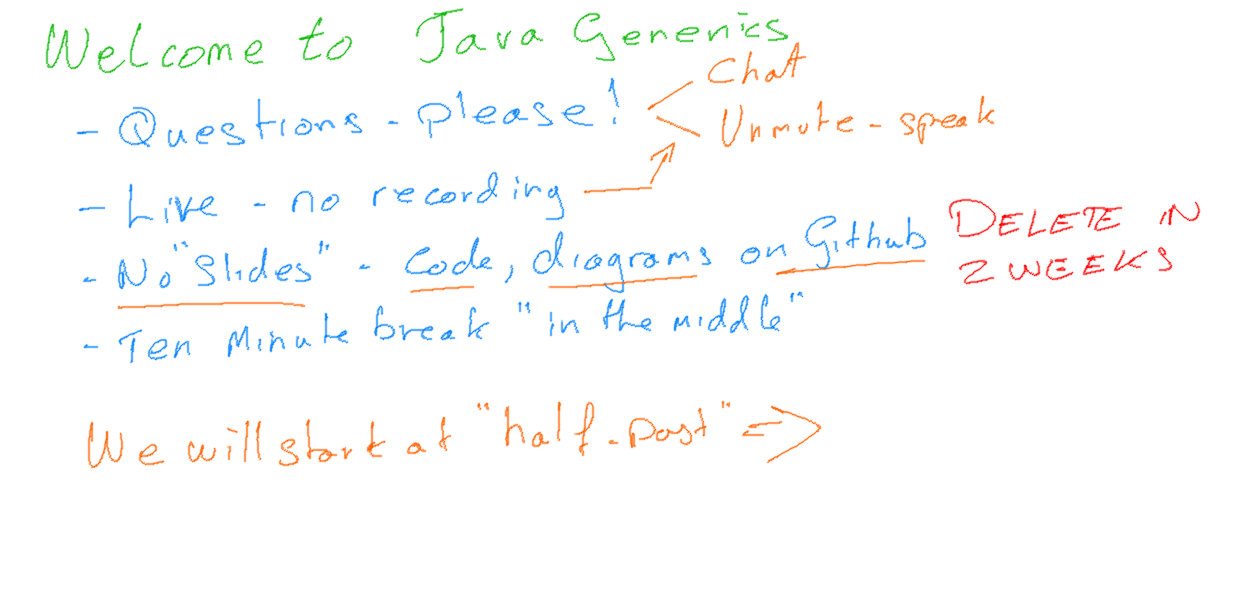 Welcome to Java Generics
- Questions - please!
Chat
Unmute - speak
- Live - no recording
- No "Slides" - Code, diagrams on Github
DELETE IN
2 WEEKS
- Ten Minute break "in the middle"
We will start at "half-past" =>